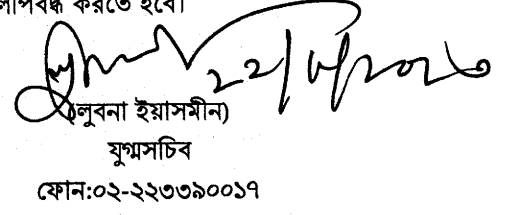 লিপিবদ্ধ করতে হবে।
(লুবনা ইয়াসমীন)
যুগ্মসচিব
ফোন:০২-২২৩৩৯০০১৭